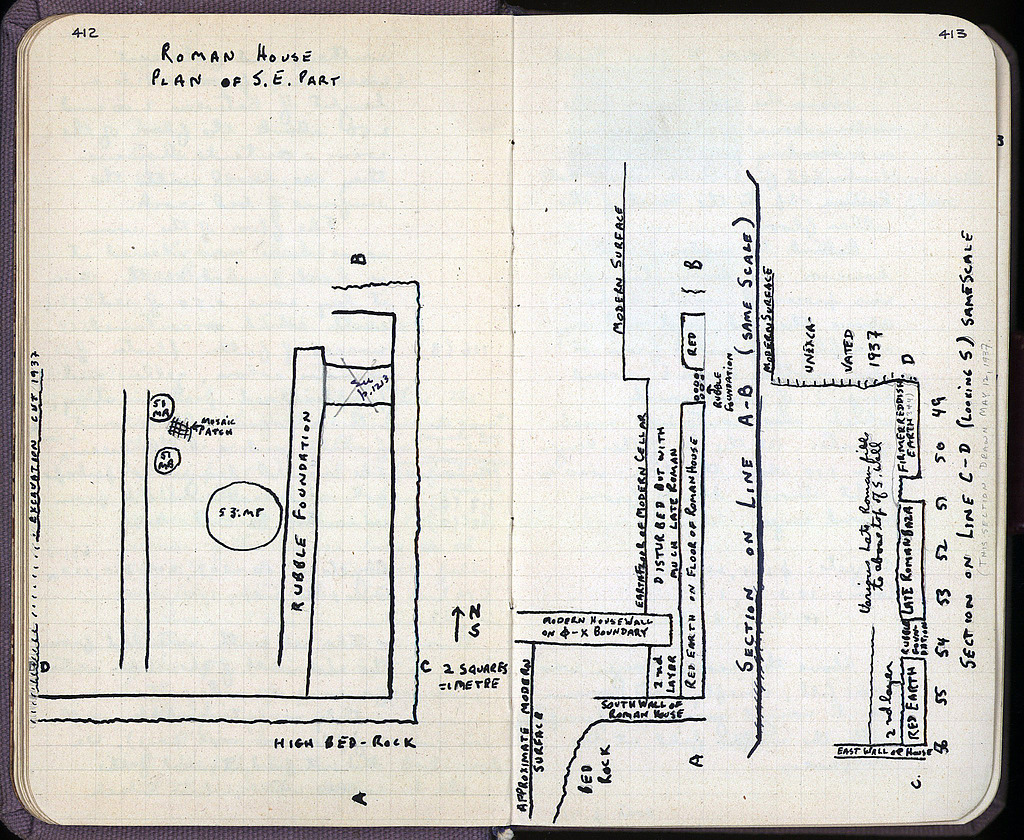 412
ROMAN HOUSE
PLAN OF S.E. PART
B
EXCAVATION CUT 1937
51
MA
MOSAIC
PATCH
51
MA
53:MP
RUBBLE FOUNDATION
See
p.1213
N
S
D
C
2 SQUARES
=1 METRE
HIGH BED-ROCK
A
413
MODERN SURFACE
B
RED
RUBBLE
FOUNDATION
EARTH FLOOR OF MODERN CELLAR
DISTURBED BUT WITH
MUCH LATE ROMAN
RED EARTH ON FLOOR OF ROMAN HOUSE
MODERN HOUSE WALL
ON Φ-X BOUNDARY
2nd
LAYER
SOUTH WALL OF
ROMAN HOUSE
APPROXIMATE MODERN
SURFACE
BED
ROCK
A
SECTION ON LINE A-B (SAME SCALE)
MODERN SURFACE
UNEXCA-
VATED
1937
D
Various Late Roman fills
to about top of S. wall
FIRMER REDDISH
EARTH
LATE ROMAN BAZA
RUBBLE
FOUN-
DATION
2nd layer
RED EARTH
EAST WALL OF HOUSE
C.
49
50
51
52
53
54
55
56
SECTION ON LINE C-D (LOOKING S) SAME SCALE
(THIS SECTION DRAWN MAY 12, 1937.